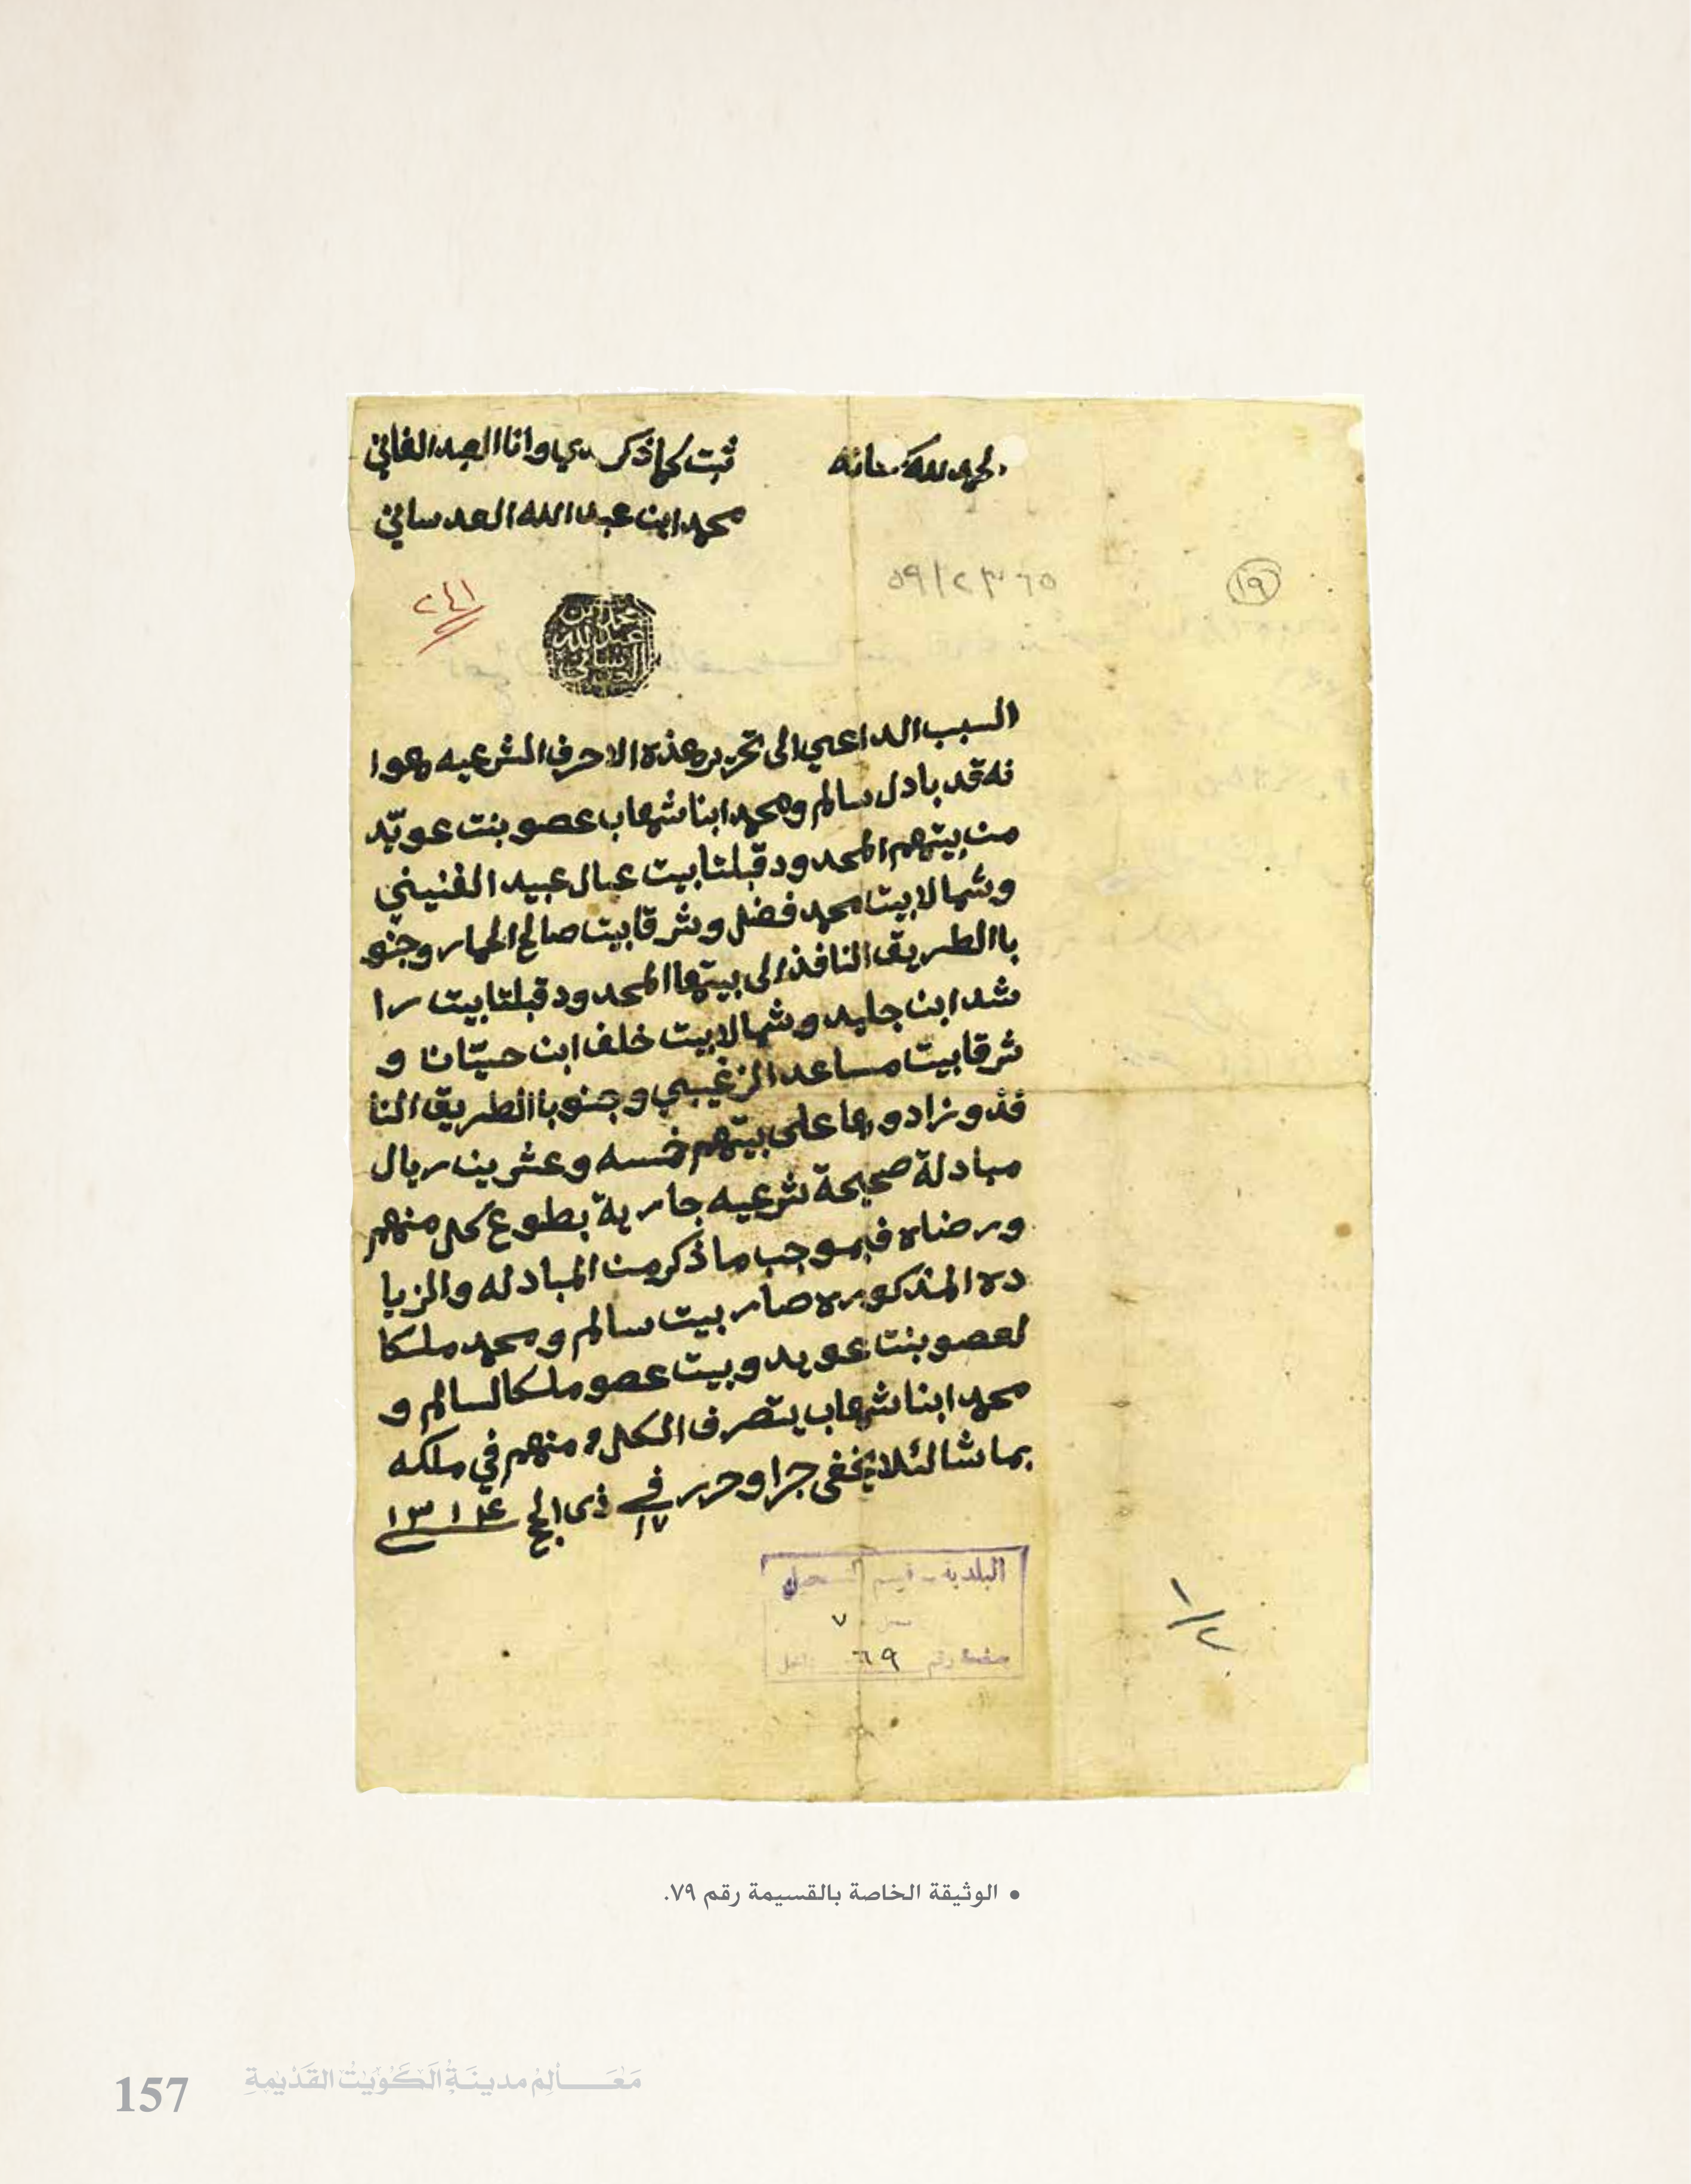 الحمد لله سبحانه
ثبت كما ذكر لدي وانا العبد الفاني
محمد ابن عبد الله العدساني
٢٤١
١٩
محمد بن عبد الله العدساني
السبب الداعي الى تحرير هذه الاحرف الشرعيه وهوا
نه قد بادل سالم ومحمد ابنا شهاب عصو بنت عويّد
من بيتهم المحدود قبلتا بيت عيال عبيد الغنيني
وشمالا بيت محمد فضل وشرقا بيت صالح الحمار وجنو
با الطريق النافذ الى بيتها المحدود قبلتا بيت را
شد ابن جليد وشمالا بيت خلف ابن حيّانا و
شرقا بيت مساعد الزغيبي وجنوبا الطريق النا
فذ وزادوها على بيتهم خمسه وعشرين ريال
مبادلة صحيحة شرعيه جارية بطوع كل منهم
ورضاه فبموجب ما ذكر من المبادله والزيا
ده المذكوره صار بيت سالم ومحمد ملكا
لعصو بنت عويد وبيت عصو ملكا لسالم و
محمد ابنا شهاب يتصرف الكل منهم في ملكه
بما شا لئلا يخفى جرا وحرر في ١٧ ذى الحج ١٣١٤
البلدية - قسم التسجيل
٧
صفحة رقم ٦٩
١/٢
• الوثيقة الخاصة بالقسيمة رقم ٧٩.
157 مَعَالِمْ مدينَةُ الكُوَيْتْ القَدْيِمةِ